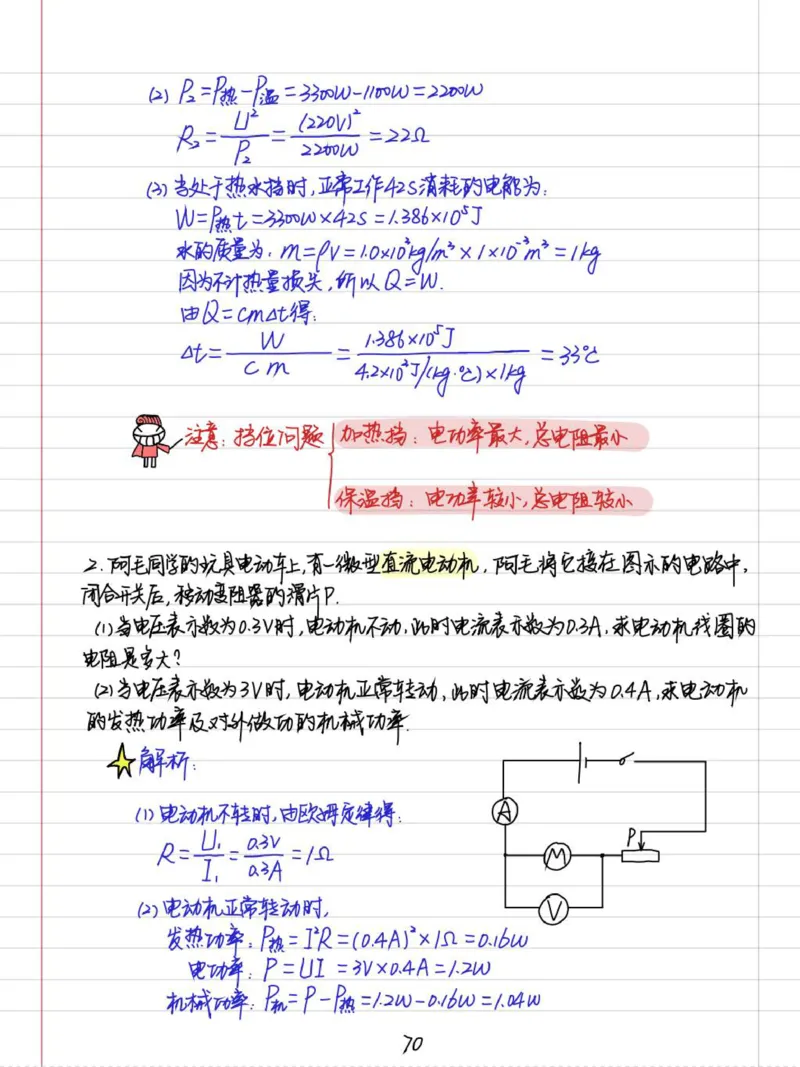 (2) P₂=P热-P温=3300W-1100W=2200W
R₂=U²/P₂=(220V)²/2200W=22Ω
(3)当处于热水挡时,正常工作42S消耗的电能为:
W=P热t=3300W×42S=1.386×10⁵J
水的质量为: m=ρV=1.0×10³kg/m³×1×10⁻³m³=1kg
因为不计热量损失,所以Q=W.
由Q=cmΔt得:
Δt=W/cm=1.386×10⁵J/4.2×10³J/(kg·℃)×1kg=33℃
注意:挡位问题
加热挡:电功率最大,总电阻最小
保温挡:电功率较小,总电阻较小
2.阿毛同学的玩具电动车上,有一微型直流电动机,阿毛将它接在图示的电路中,
闭合开关后,移动变阻器的滑片P.
(1)当电压表示数为0.3V时,电动机不动,此时电流表示数为0.3A,求电动机线圈的
电阻是多大?
(2)当电压表示数为3V时,电动机正常转动,此时电流表示数为0.4A,求电动机
的发热功率及对外做功的机械功率.
解析:
(1)电动机不转时,由欧姆定律得:
R=U₁/I₁=0.3V/0.3A=1Ω
(2)电动机正常转动时,
发热功率:P热=I²R=(0.4A)²×1Ω=0.16W
电功率:P=UI=3V×0.4A=1.2W
机械功率:P机=P-P热=1.2W-0.16W=1.04W
A
P
M
V
70